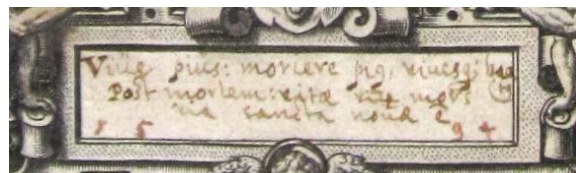 Viue pius: moriere pius, viuesq;
Post mortem: vitæ mors
via sancta nouæ ē
1 5 9 4